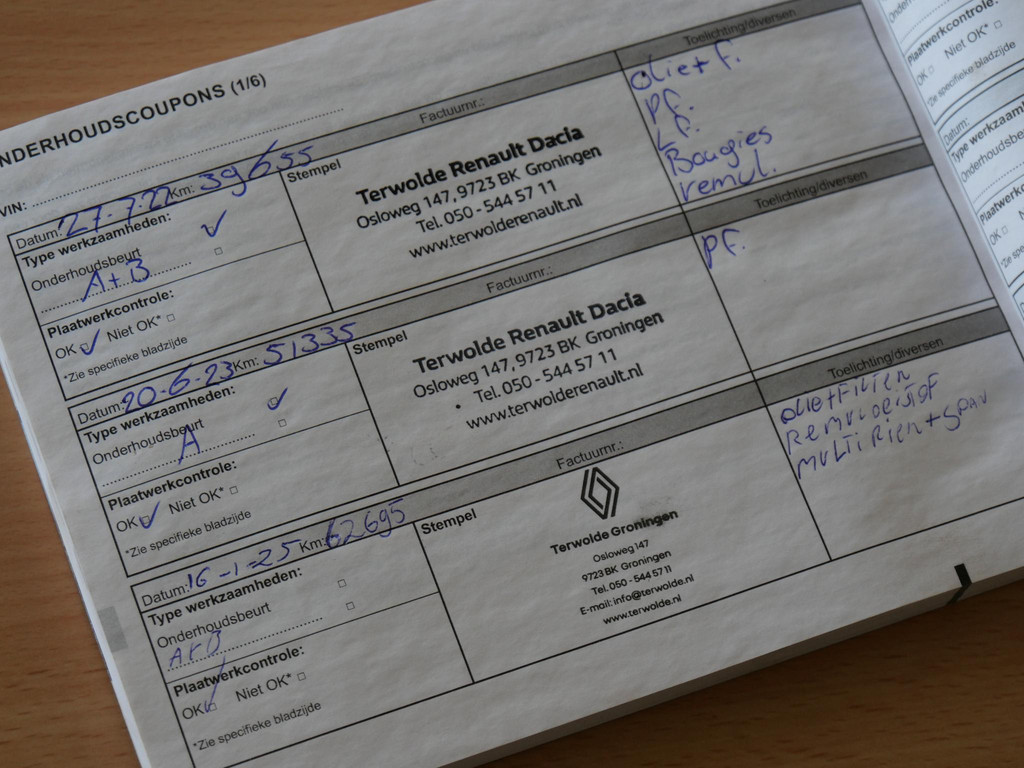 NDERHOUDSCOUPONS (1/6)
VIN:
Datum: 27-7-22 Km: 39655 Stempel Factuurnr.: Toelichting/diversen
Type werkzaamheden:
Onderhoudsbeurt
A+B
Plaatwerkcontrole:
OK Niet OK*
*Zie specifieke bladzijde
Terwolde Renault Dacia
Osloweg 147, 9723 BK Groningen
Tel. 050 - 544 57 11
www.terwolderenault.nl
olie+f.
pf.
Lf.
Bougies
remvl.
Datum: 20-6-23 Km: 51335 Stempel Factuurnr.: Toelichting/diversen
Type werkzaamheden:
Onderhoudsbeurt
A
Plaatwerkcontrole:
OK Niet OK*
*Zie specifieke bladzijde
Terwolde Renault Dacia
Osloweg 147, 9723 BK Groningen
Tel. 050 - 544 57 11
www.terwolderenault.nl
pf.
Datum: 16-1-25 Km: 62695 Stempel Factuurnr.: Toelichting/diversen
Type werkzaamheden:
Onderhoudsbeurt
A+B
Plaatwerkcontrole:
OK Niet OK*
*Zie specifieke bladzijde
Terwolde Groningen
Osloweg 147
9723 BK Groningen
Tel. 050 - 544 57 11
E-mail: info@terwolde.nl
www.terwolde.nl
OLIE+FILTER
REMVLOEISTOF
MULTIRIEM+SPAN
Plaatwerkcontrole:
OK Niet OK*
*Zie specifieke bladzijde
Datum:
Type werkzaamheden
Onderhoudsbeurt